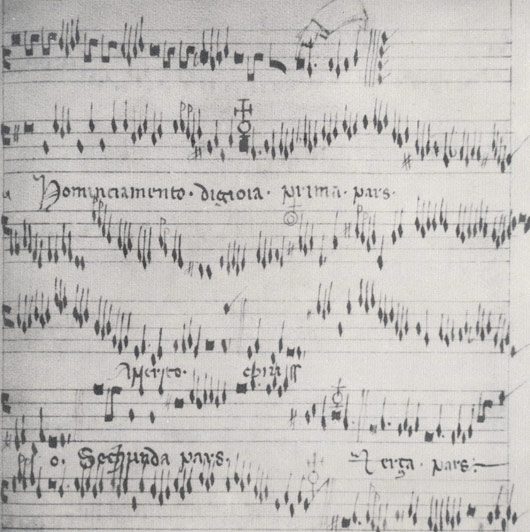 Chominciamento · digioia · prima · pars ·
Aperto · chiuss
o · Sechunda pars · Terça · pars ·